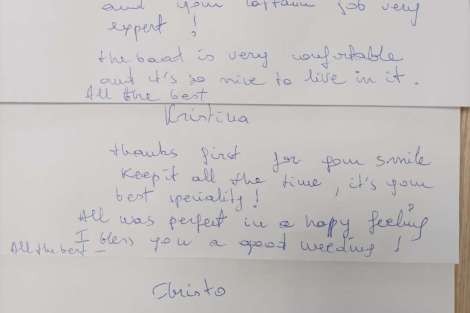 and your captain job very
expert !
the baad is very comfortable
and it's so nice to live in it.
All the best
Kristina
thanks first for your smile
Keep it all the time, it's your
best speriality !
All was perfect in a happy feeling
I bless you a good weeding !
All the best -
Christo